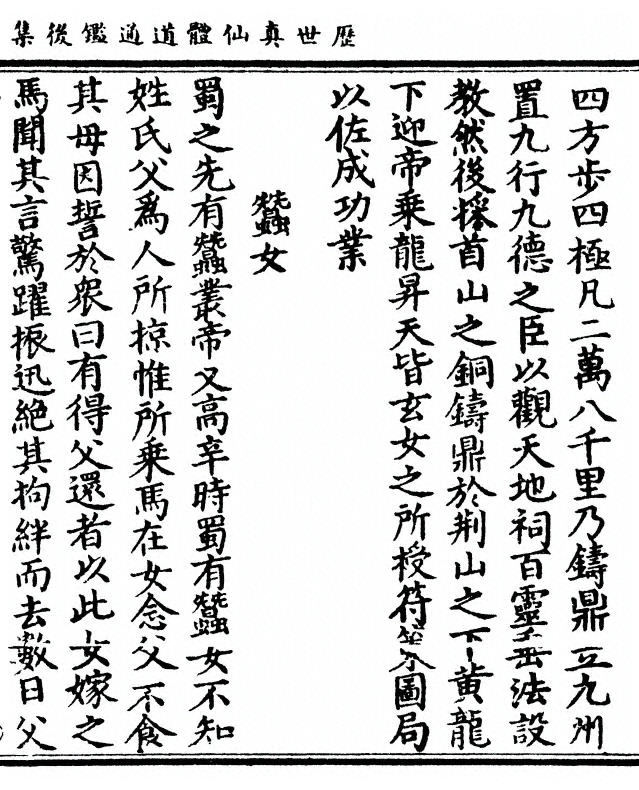 歷世真仙體道通鑑後集
四方步四極凡二萬八千里乃鑄鼎立九州
置九行九德之臣以觀天地祠百靈垂法設
教然後採首山之銅鑄鼎於荊山之下黃龍
下迎帝乘龍昇天皆玄女之所授符圖局
以佐成功業
蠶女
蜀之先有蠶叢帝又高辛時蜀有蠶女不知
姓氏父爲人所掠惟所乘馬在女念父不食
其母因誓於衆曰有得父還者以此女嫁之
馬聞其言驚躍振迅絕其拘絆而去數日父